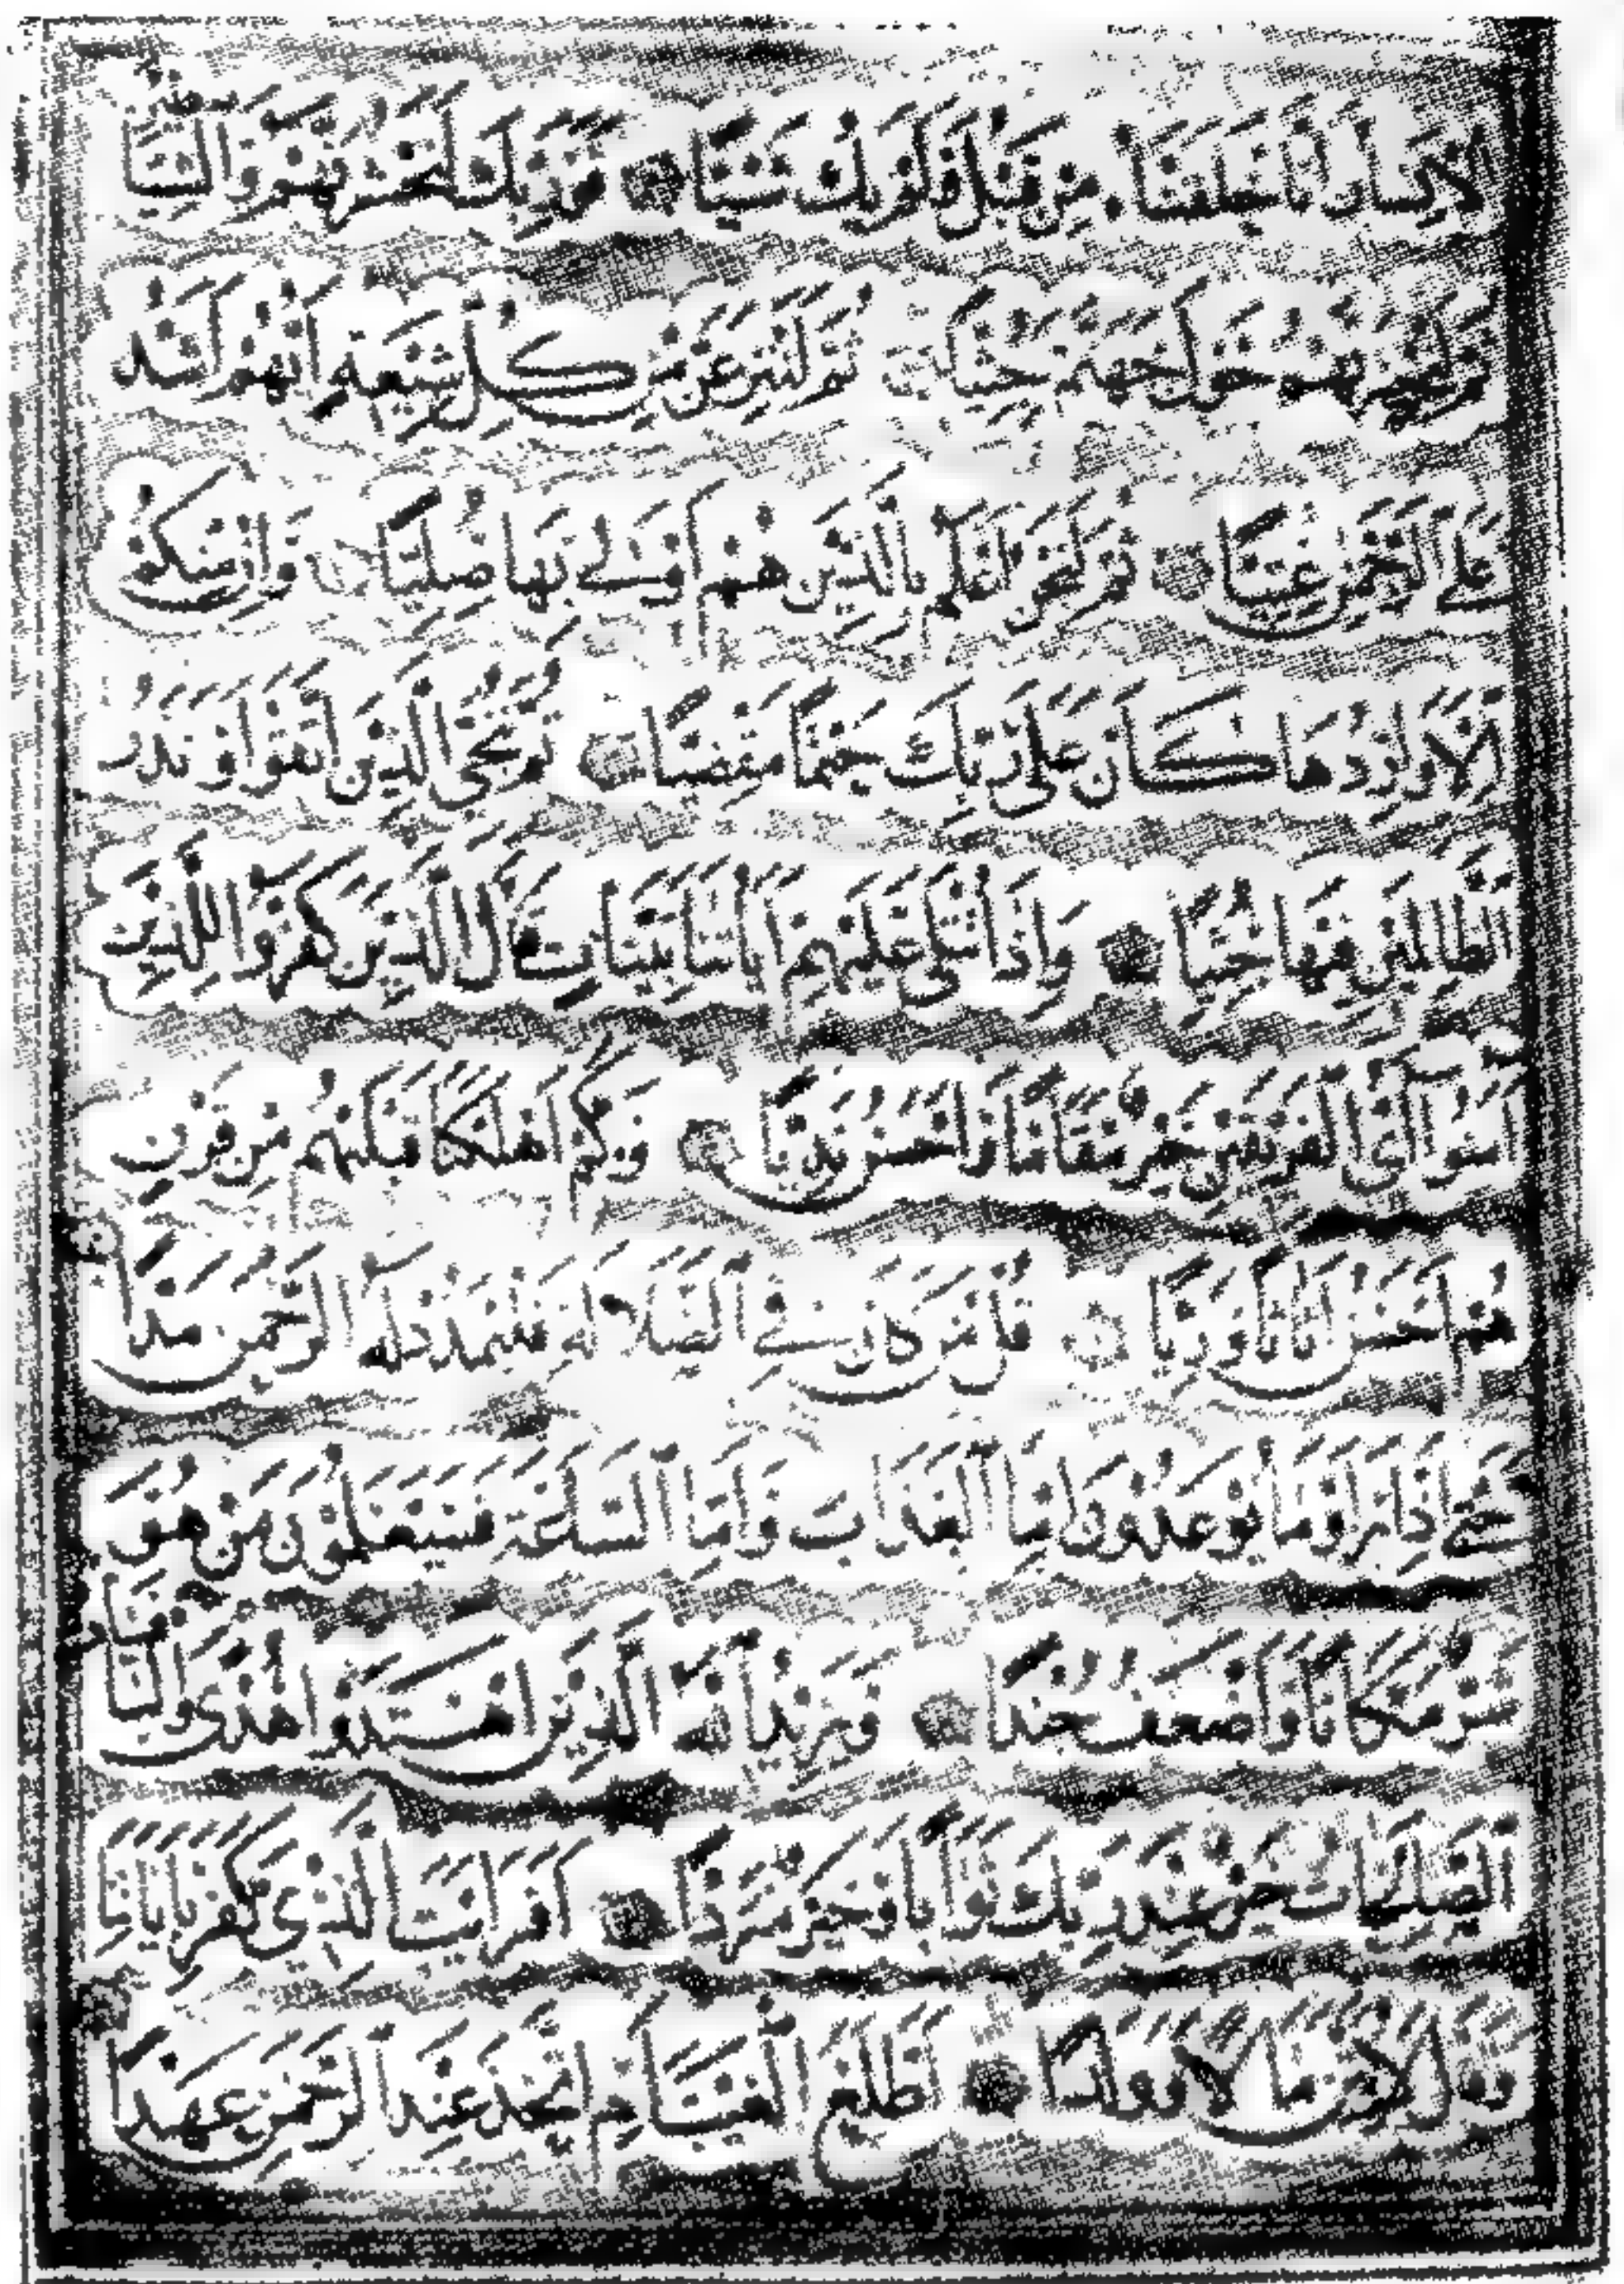 الْإِنْسَانُ أَنَّا خَلَقْنَاهُ مِنْ قَبْلُ وَلَمْ يَكُ شَيْئًا فَوَرَبِّكَ لَنَحْشُرَنَّهُمْ وَالشَّيَاطِينَ
ثُمَّ لَنُحْضِرَنَّهُمْ حَوْلَ جَهَنَّمَ جِثِيًّا ثُمَّ لَنَنْزِعَنَّ مِنْ كُلِّ شِيعَةٍ أَيُّهُمْ أَشَدُّ
عَلَى الرَّحْمَنِ عِتِيًّا ثُمَّ لَنَحْنُ أَعْلَمُ بِالَّذِينَ هُمْ أَوْلَى بِهَا صِلِيًّا وَإِنْ مِنْكُمْ
إِلَّا وَارِدُهَا كَانَ عَلَى رَبِّكَ حَتْمًا مَقْضِيًّا ثُمَّ نُنَجِّي الَّذِينَ اتَّقَوْا وَنَذَرُ
الظَّالِمِينَ فِيهَا جِثِيًّا وَإِذَا تُتْلَى عَلَيْهِمْ آيَاتُنَا بَيِّنَاتٍ قَالَ الَّذِينَ كَفَرُوا لِلَّذِينَ
آمَنُوا أَيُّ الْفَرِيقَيْنِ خَيْرٌ مَقَامًا وَأَحْسَنُ نَدِيًّا وَكَمْ أَهْلَكْنَا قَبْلَهُمْ مِنْ قَرْنٍ
هُمْ أَحْسَنُ أَثَاثًا وَرِئْيًا قُلْ مَنْ كَانَ فِي الضَّلَالَةِ فَلْيَمْدُدْ لَهُ الرَّحْمَنُ مَدًّا
حَتَّى إِذَا رَأَوْا مَا يُوعَدُونَ إِمَّا الْعَذَابَ وَإِمَّا السَّاعَةَ فَسَيَعْلَمُونَ مَنْ هُوَ
شَرٌّ مَكَانًا وَأَضْعَفُ جُنْدًا وَيَزِيدُ اللَّهُ الَّذِينَ اهْتَدَوْا هُدًى وَالْبَاقِيَاتُ
الصَّالِحَاتُ خَيْرٌ عِنْدَ رَبِّكَ ثَوَابًا وَخَيْرٌ مَرَدًّا أَفَرَأَيْتَ الَّذِي كَفَرَ بِآيَاتِنَا
وَقَالَ لَأُوتَيَنَّ مَالًا وَوَلَدًا أَطَّلَعَ الْغَيْبَ أَمِ اتَّخَذَ عِنْدَ الرَّحْمَنِ عَهْدًا